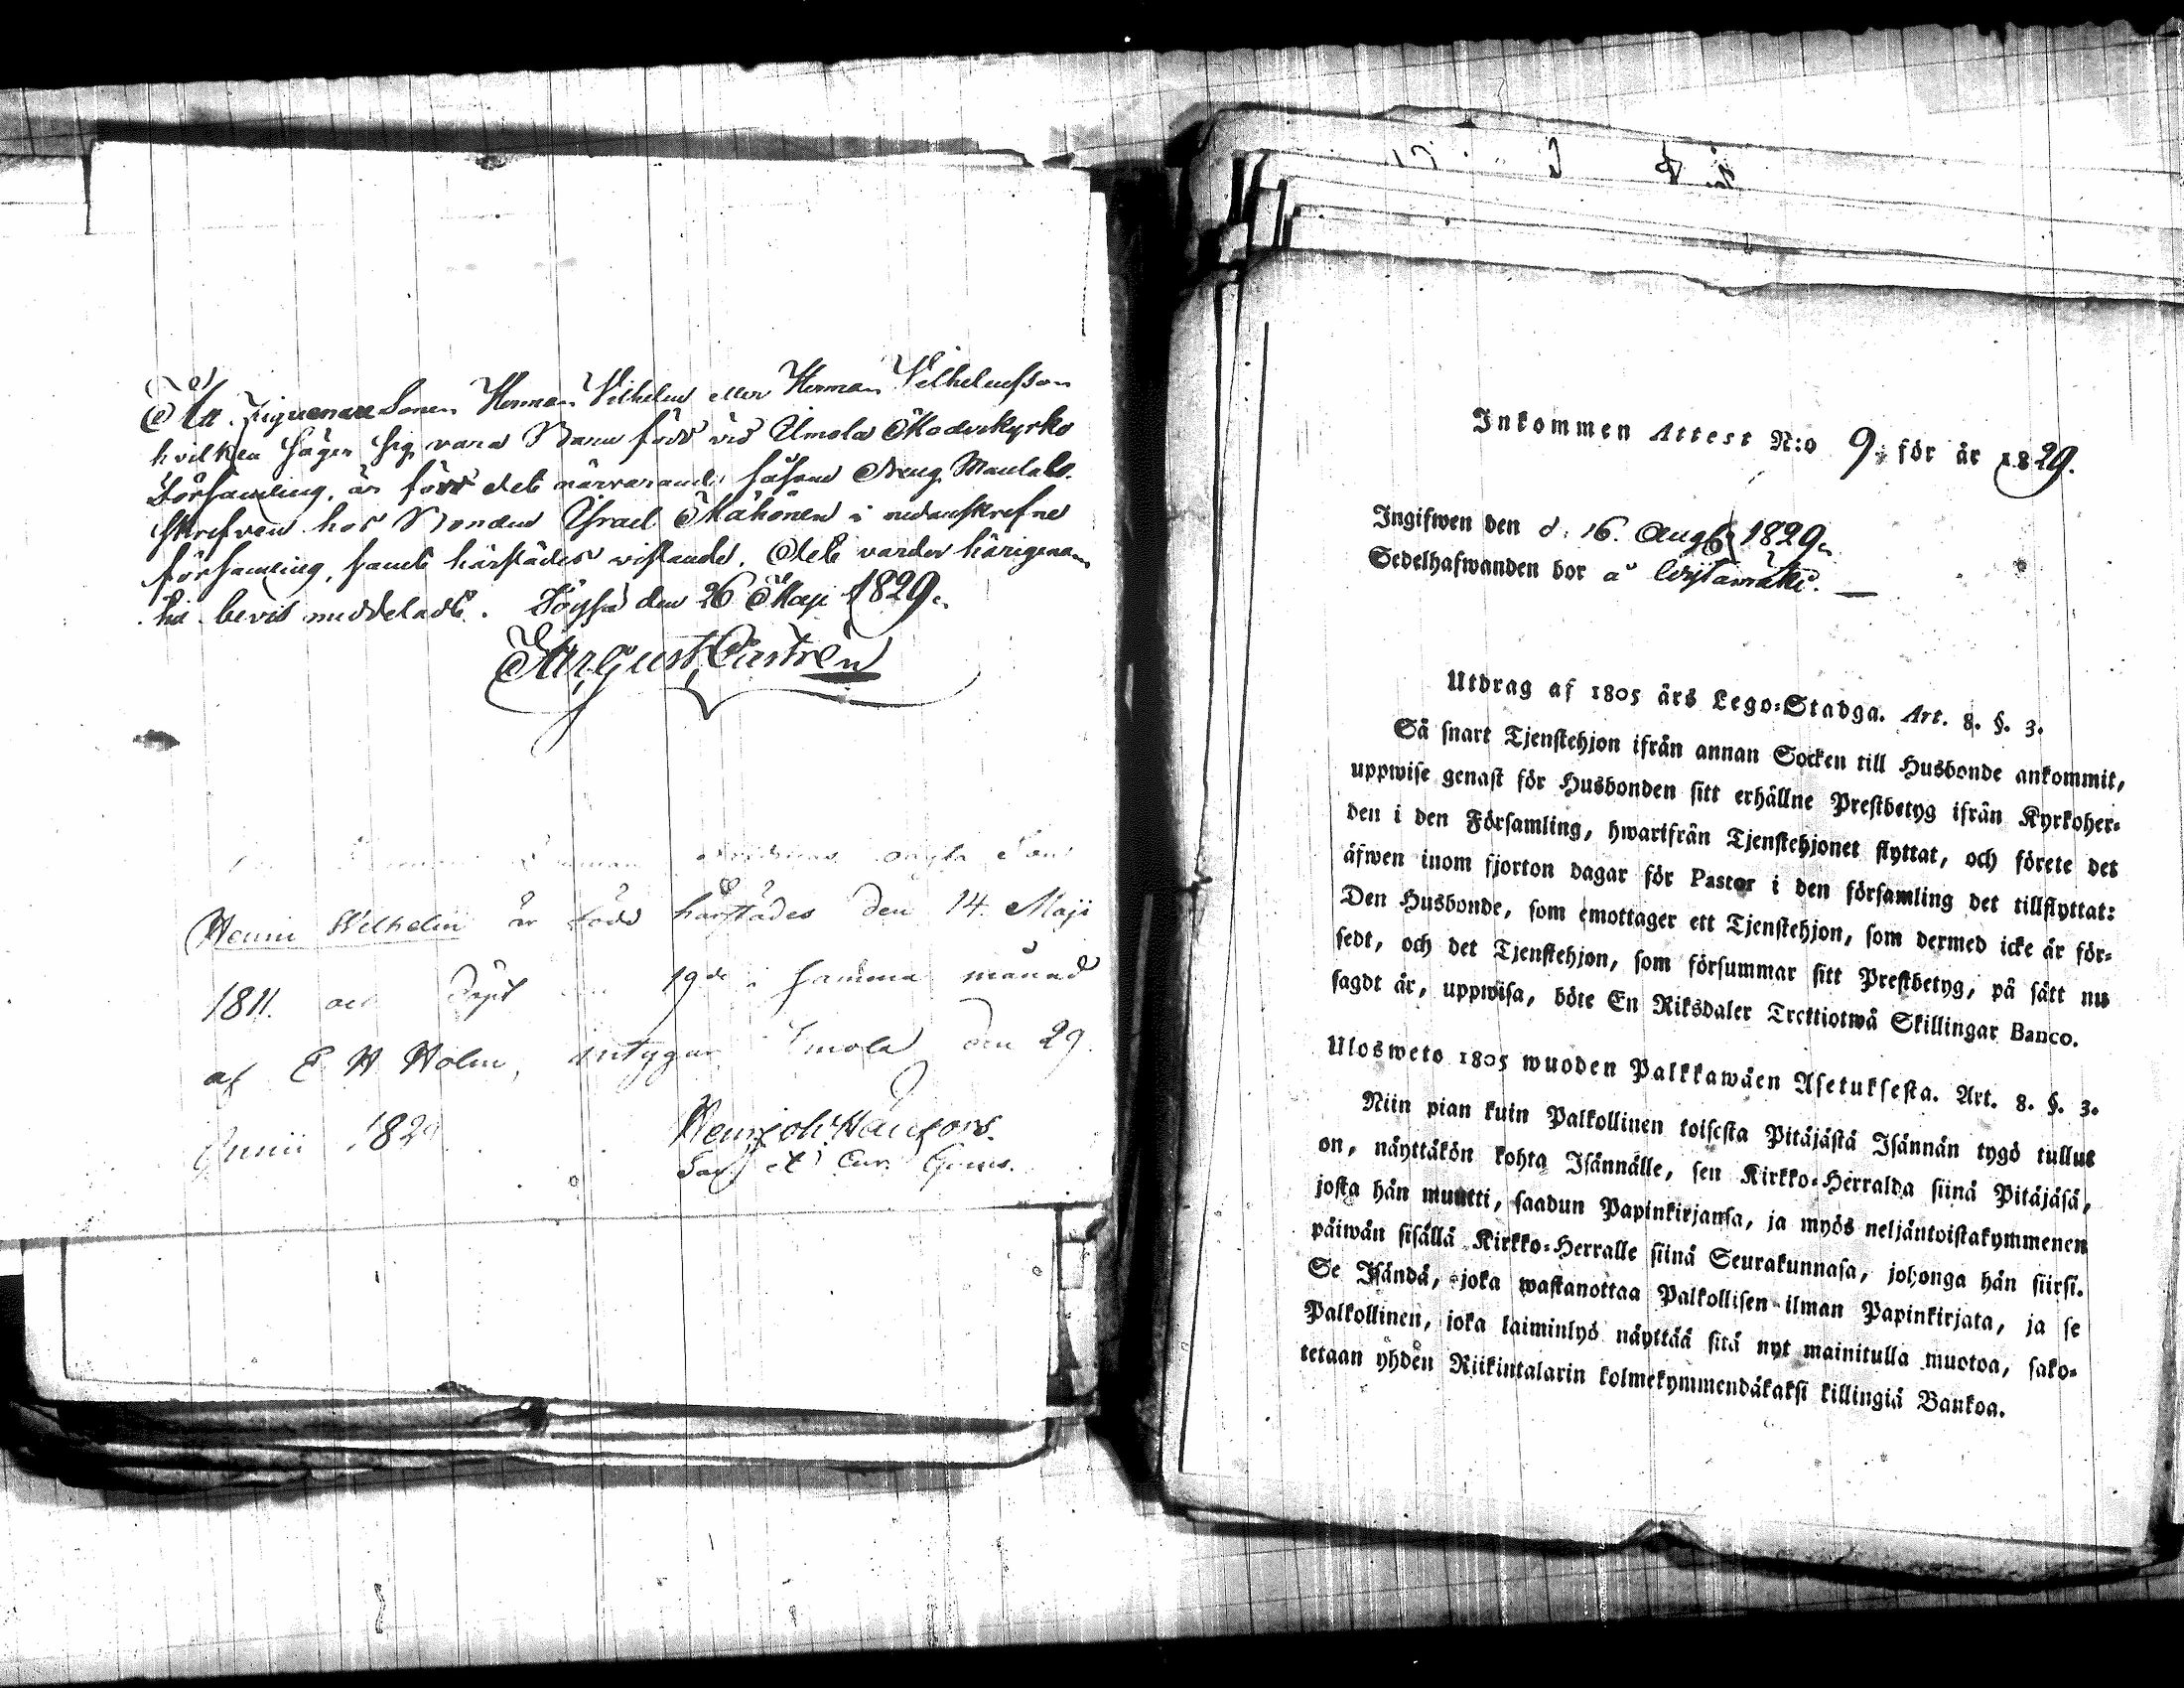 Att Ziguenare Sonen Herman Vilhelm eller Herman Vilhelmsson
hvilken säger sig vara Barn född vid Ilmola Moderkyrko
Församling, är för det närvarande såsom Dreng Mantals-
skrefven hos Bonden Israel Mähönen i nedanskrefne
församling, samt härstädes vistande. Det varder härigenom
till bevis meddeladt. Töysä den 26 Maji 1829.
August Castrén
oägta Son
Henric Wilhelm är född härstädes den 14 Maji
1811. och Döpt 19de i samma månad
af E W Holm, intygar Ilmola den 29.
Junii 1829
Sac. et Cur.
Inkommen Attest N:o 9. för år 1829.
Ingifwen den d. 16. Aug 1829.
Sedelhafwanden bor å
Utdrag af 1805 års Lego-Stadga. Art. 8. §. 3.
Så snart Tjenstehjon ifrån annan Socken till Husbonde ankommit,
uppwise genast för Husbonden sitt erhållne Prestbetyg ifrån Kyrkoher-
den i den Församling, hwarifrån Tjenstehjonet flyttat, och förete det
äfwen inom fjorton dagar för Pastor i den församling det tillflyttat:
Den Husbonde, som emottager ett Tjenstehjon, som dermed icke är för-
sedt, och det Tjenstehjon, som försummar sitt Prestbetyg, på sätt nu
sagdt är, uppwisa, böte En Riksdaler Trettiotwå Skillingar Banco.
Ulosweto 1805 wuoden Palkkawäen Asetuksesta. Art. 8. §. 3.
Niin pian kuin Palkollinen toisesta Pitäjästä Isännän tygö tullut
on, näyttäkön kohta Isännälle, sen Kirkko-Herralda siinä Pitäjäsä,
josta hän muutti, saadun Papinkirjansa, ja myös neljäntoistakymmenen
päiwän sisällä Kirkko-Herralle siinä Seurakunnasa, johonga hän siirsi.
Se Isändä, joka wastanottaa Palkollisen ilman Papinkirjata, ja se
Palkollinen, joka laiminlyö näyttää sitä nyt mainitulla muotoa, sako-
tetaan yhden Riikintalarin kolmekymmendäkaksi killingiä Bankoa.